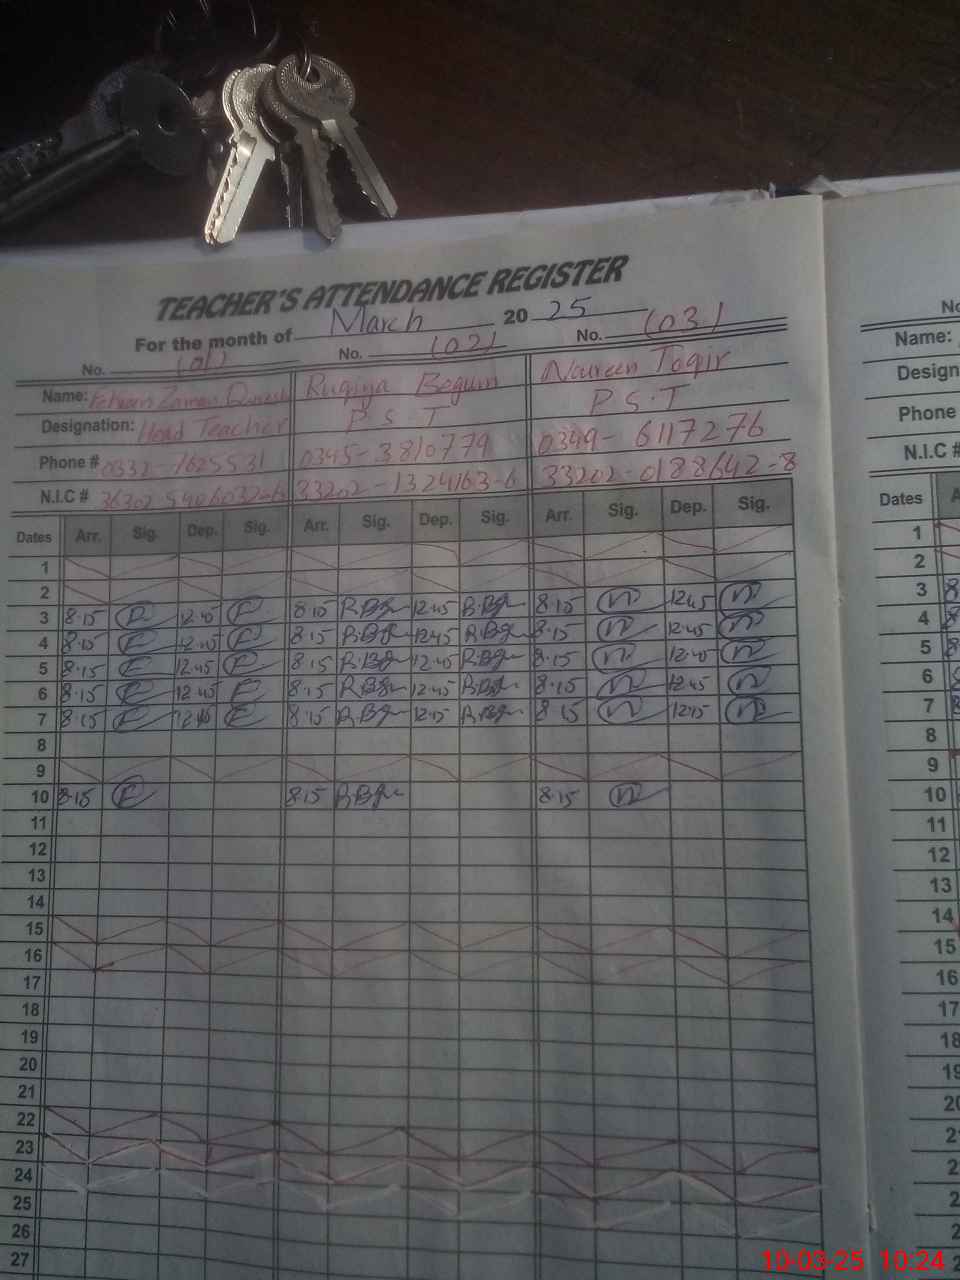 TEACHER'S ATTENDANCE REGISTER
For the month of March 2025
No. (01) No. (02) No. (03)
Name: Zaman Ruqiya Begum Noreen Toqir
Designation: Head Teacher P S T P S.T
Phone # 0332-7625531 0345-3810779 0349-6117276
N.I.C # 33202-1324163-6 33202-0188642-8
Dates Arr. Sig. Dep. Sig. Arr. Sig. Dep. Sig. Arr. Sig. Dep. Sig.
1
2
3 8.15 E 12.45 E 8.15 R.Bgm 12.45 R.Bgm 8.15 n 12.45 n
4 8.15 E 12.45 E 8.15 R.Bgm 12.45 R.Bgm 8.15 n 12.45 n
5 8.15 E 12.45 E 8.15 R.Bgm 12.45 R.Bgm 8.15 n 12.45 n
6 8.15 E 12.45 E 8.15 R.Bgm 12.45 R.Bgm 8.15 n 12.45 n
7 8.15 E 12.45 E 8.15 R.Bgm 12.45 R.Bgm 8.15 n 12.45 n
8
9
10 8.15 E 8.15 R.Bgm 8.15 n
11
12
13
14
15
16
17
18
19
20
21
22
23
24
25
26
27
Name:
Design
Phone
N.I.C #
Dates
1
2
3
4
5
6
7
8
9
10
11
12
13
14
15
16
17
18
10-03-25 10:24